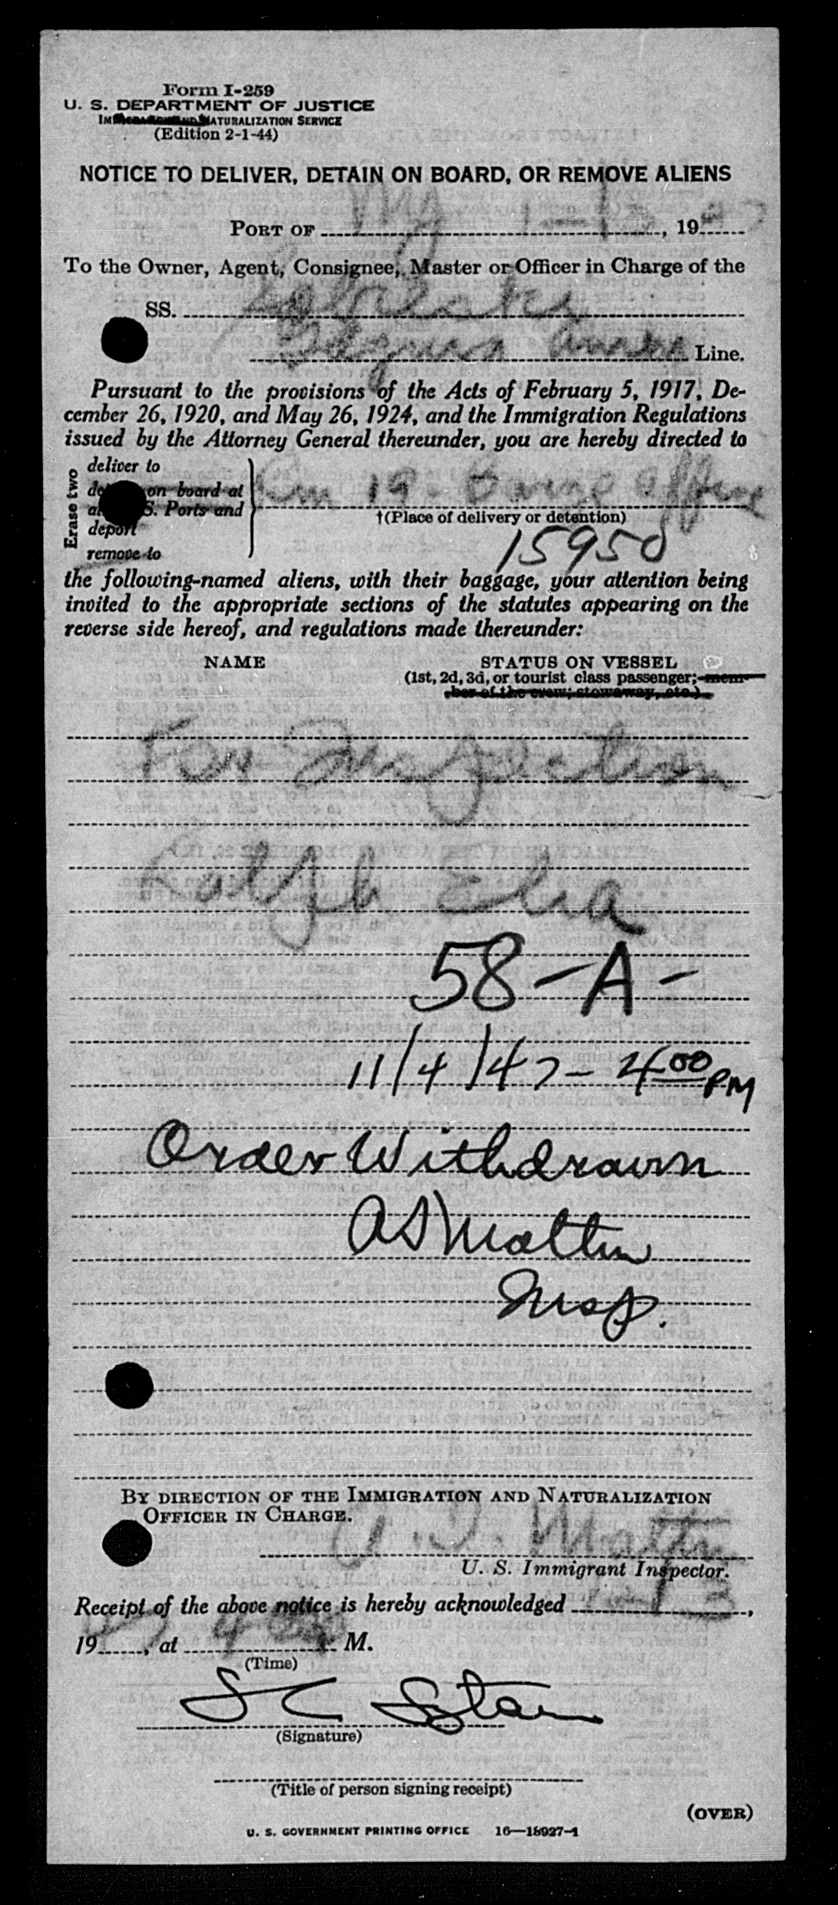 Form I-259
U. S. DEPARTMENT OF JUSTICE
NATURALIZATION SERVICE
(Edition 2-1-44)
NOTICE TO DELIVER, DETAIN ON BOARD, OR REMOVE ALIENS
PORT OF NY 19 47
To the Owner, Agent, Consignee, Master or Officer in Charge of the
SS. Sobieski
Gdynia Amer Line.
Pursuant to the provisions of the Acts of February 5, 1917, De-
cember 26, 1920, and May 26, 1924, and the Immigration Regulations
issued by the Attorney General thereunder, you are hereby directed to
Erase two
deliver to
on board at
S. Ports and
deport
remove to
Rm 19 - Barge Office
†(Place of delivery or detention)
15950
the following-named aliens, with their baggage, your attention being
invited to the appropriate sections of the statutes appearing on the
reverse side hereof, and regulations made thereunder:
NAME STATUS ON VESSEL
(1st, 2d, 3d, or tourist class passenger; mem-
ber of the crew; stowaway, etc.)
For Inspection
Ralph Elia
58-A-
11/4/47 - 4 00 PM
Order Withdrawn
A S Mattin
Insp.
BY DIRECTION OF THE IMMIGRATION AND NATURALIZATION
OFFICER IN CHARGE.
U. S. Immigrant Inspector.
Receipt of the above notice is hereby acknowledged
19 , at M.
(Time)
(Signature)
(Title of person signing receipt)
(OVER)
U. S. GOVERNMENT PRINTING OFFICE 16—18927-1